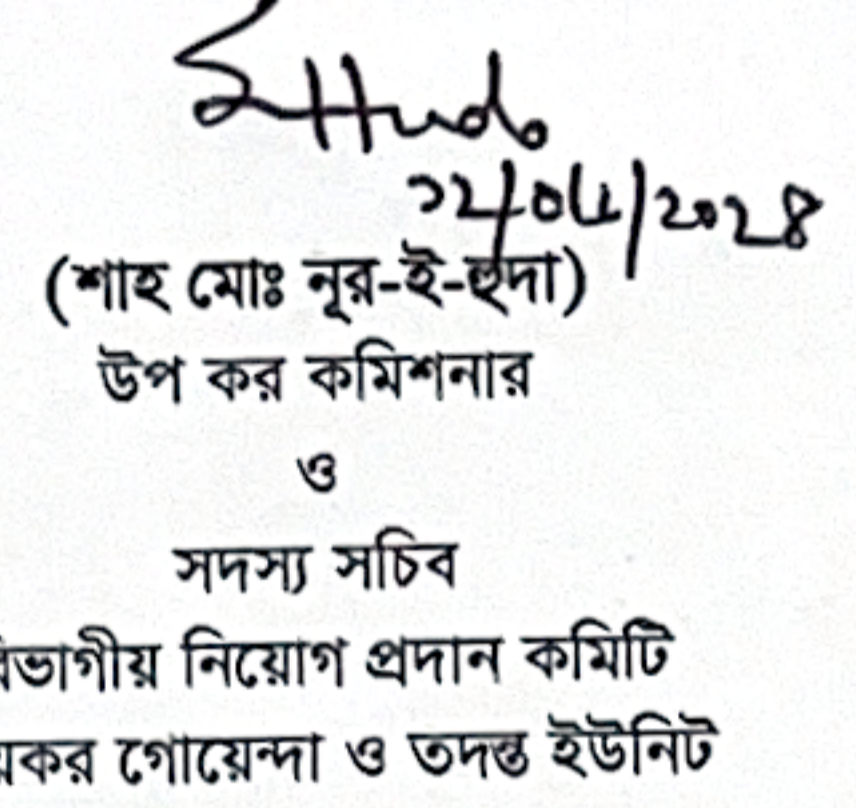 ১২/০৫/২০২৪
(শাহ মোঃ নূর-ই-হুদা)
উপ কর কমিশনার
ও
সদস্য সচিব
বিভাগীয় নিয়োগ প্রদান কমিটি
য়কর গোয়েন্দা ও তদন্ত ইউনিট